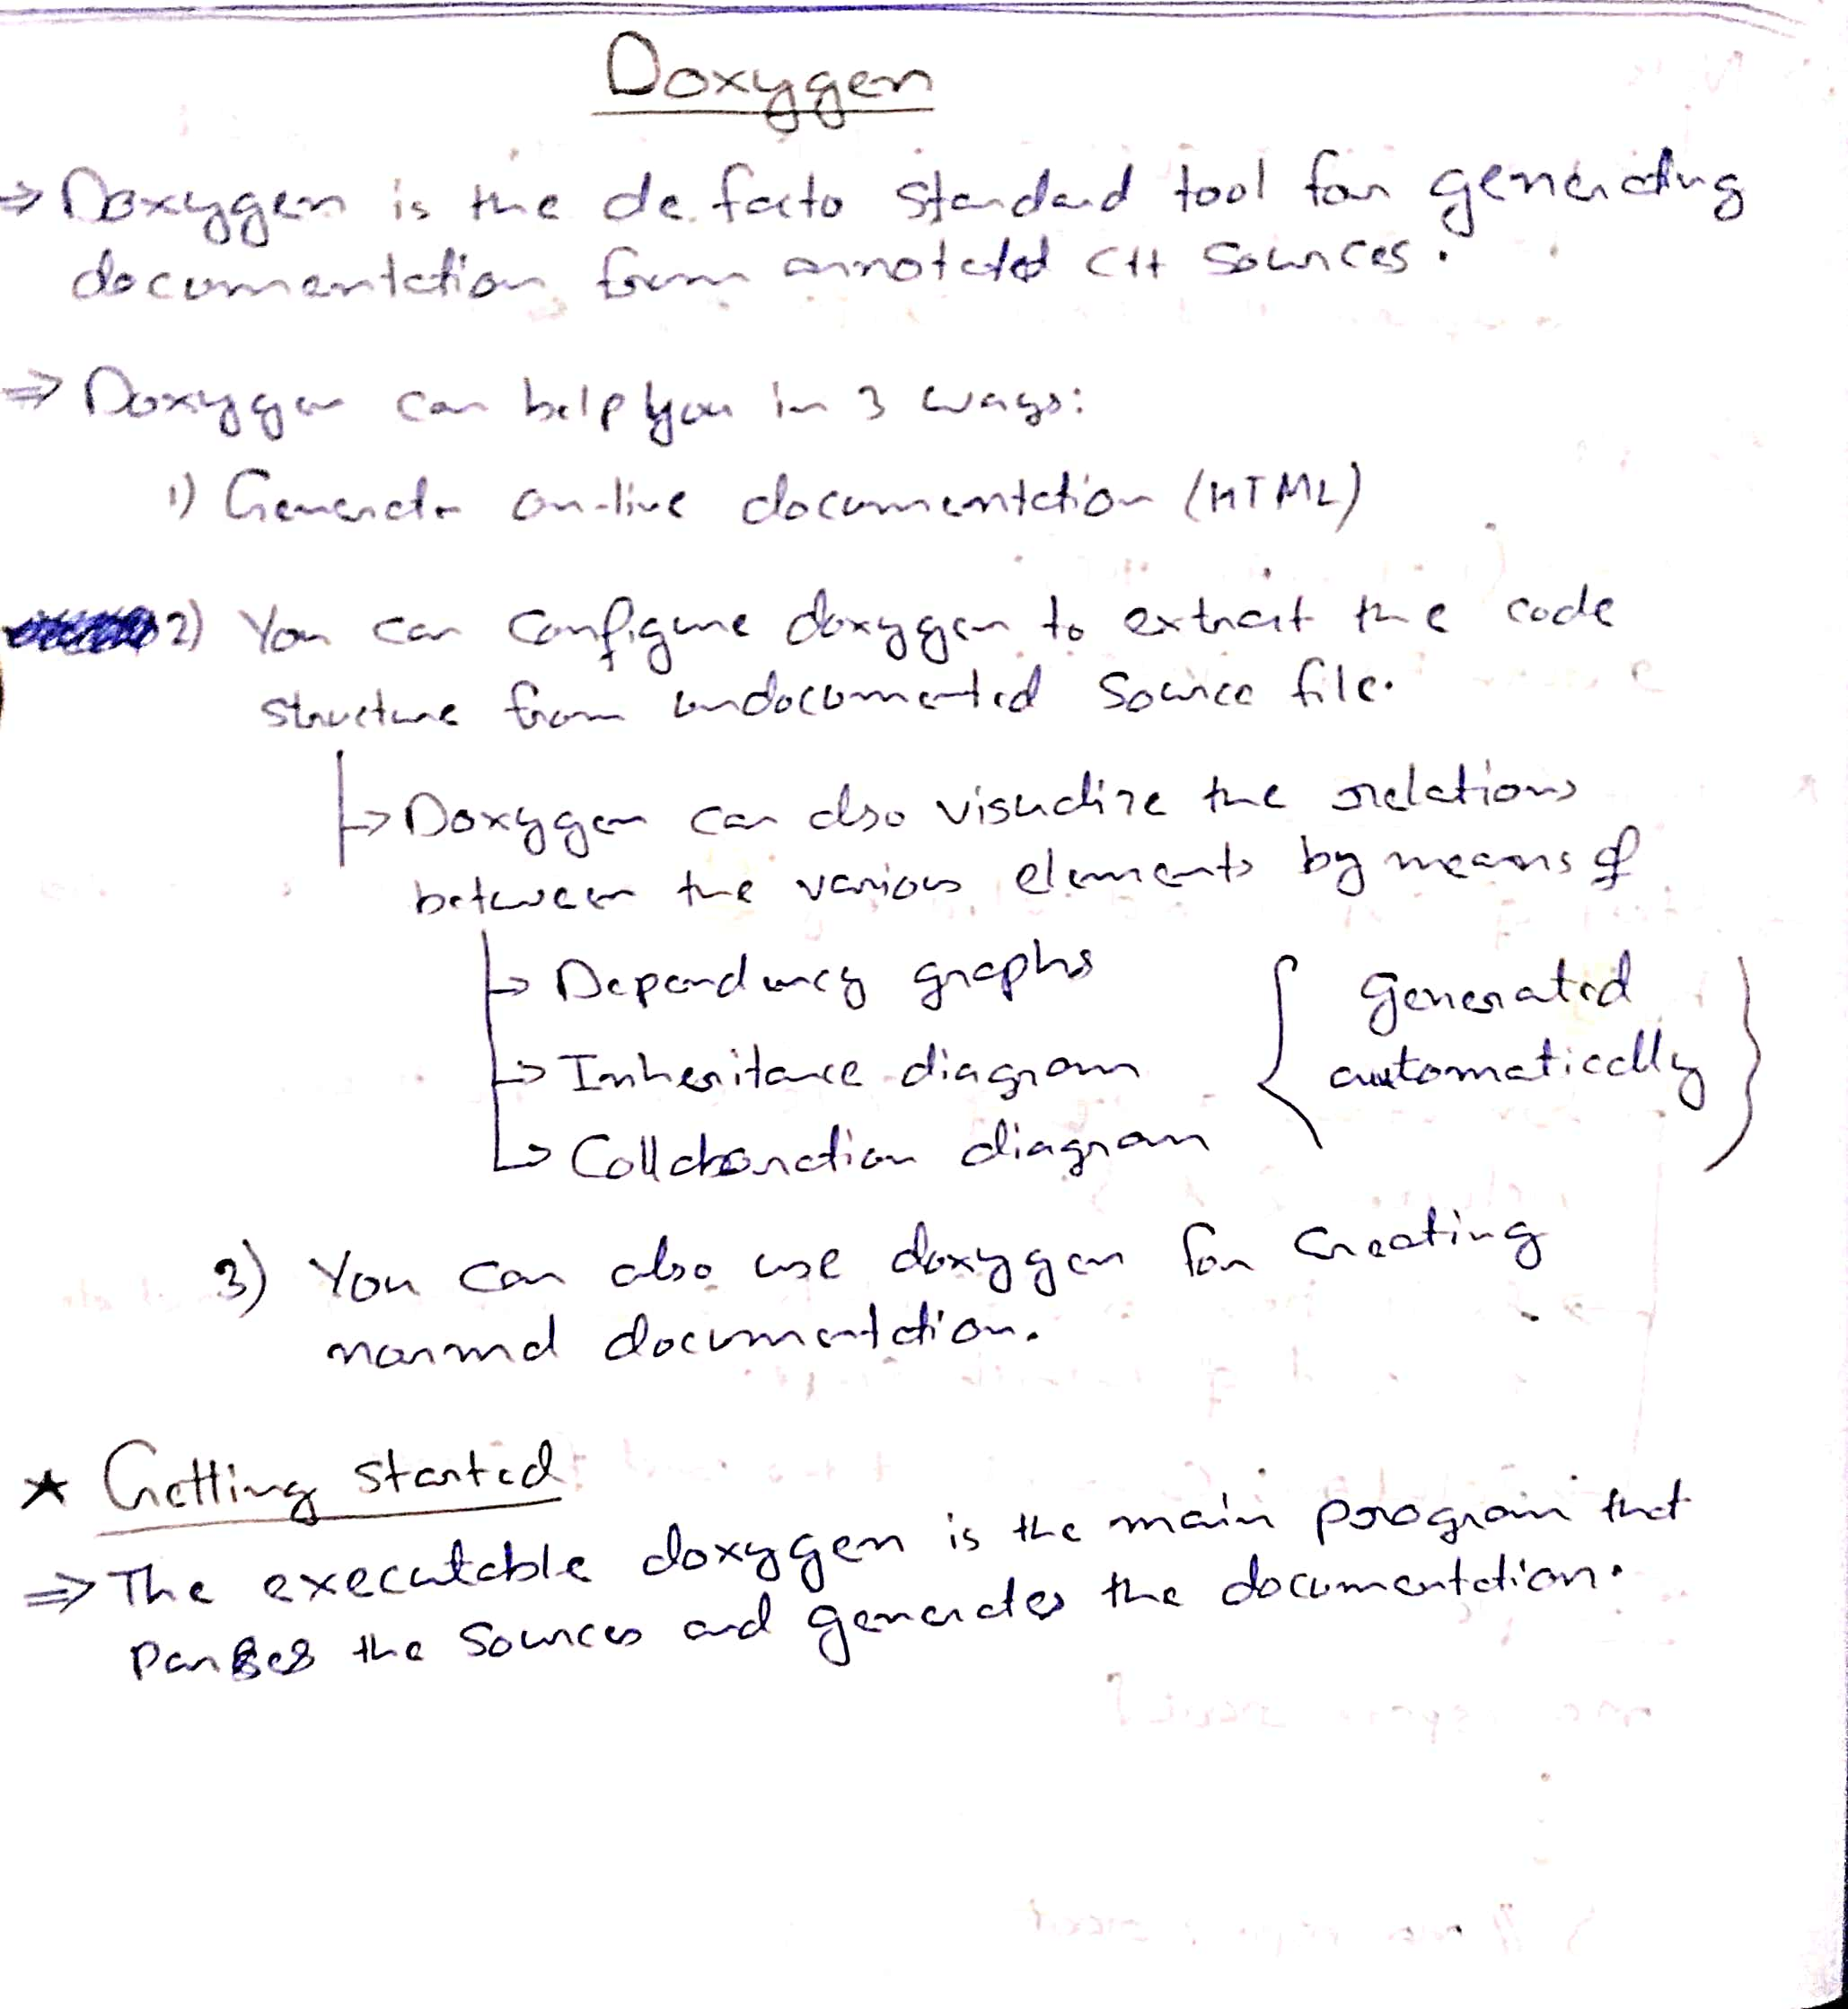 Doxygen
⇒ Doxygen is the de facto standard tool for generating
documentation from annotated C++ sources.
⇒ Doxygen can help you in 3 ways:
1) Generate on-line documentation (HTML)
2) You can configure doxygen to extract the code
structure from undocumented source file.
↳ Doxygen can also visualize the relations
between the various elements by means of
↳ Dependency graphs
↳ Inheritance diagram
↳ Collaboration diagram
{ generated
automatically }
3) You can also use doxygen for creating
normal documentation.
★ Getting started
⇒ The executable doxygen is the main program that
parses the sources and generates the documentation.